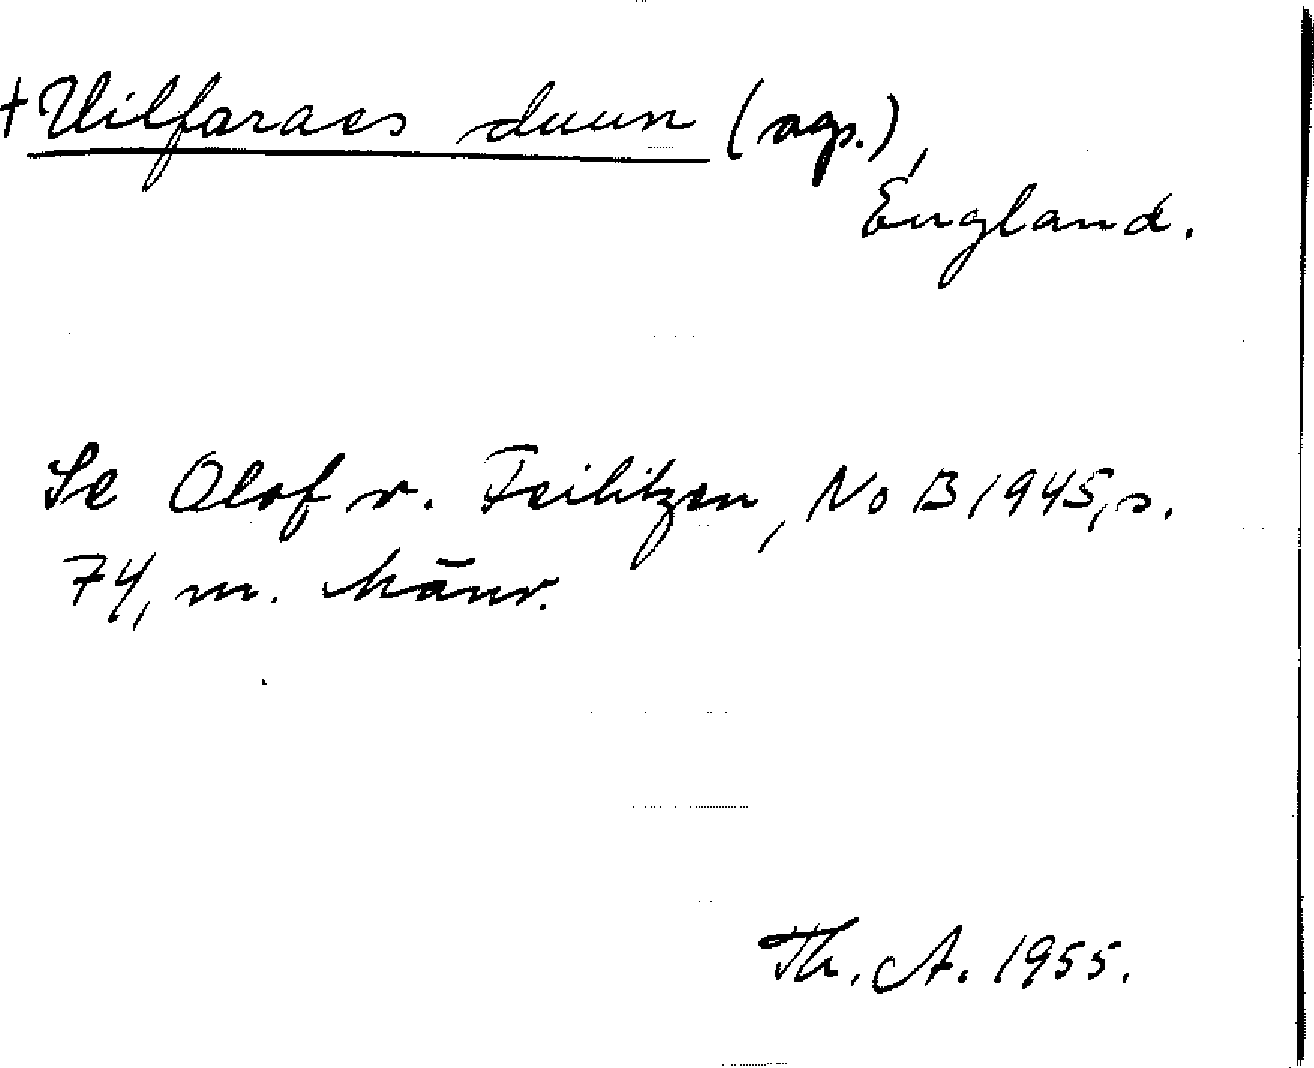 † Uilfaraes duun (ags.),
England.
Se Olof v. Feilitzen, NoB 1945, s.
74, m. hänv.
Th. A. 1955.